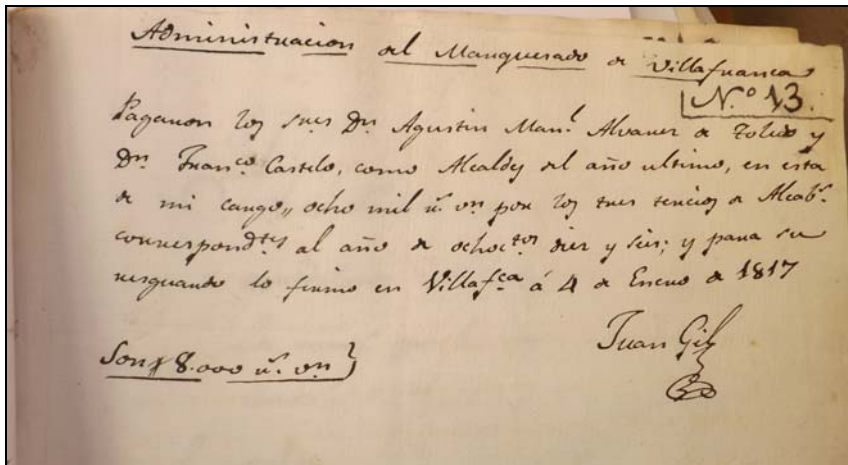 Administracion del Marquesado de Villafranca
N.º 13.
Pagaron los sres Dn. Agustin Man.l Alvarez de Toledo y
Dn. Fran.co Castelo, como Alcaldes del año ultimo, en esta
de mi cargo,, ocho mil r.s vn por los tres tercios de Alcab.s
correspond.tes al año de ochoc.tos diez y seis; y para su
resguardo lo firmo en Villaf.ca á 4 de Enero de 1817
Juan Gil
Son 8.000 r.s vn